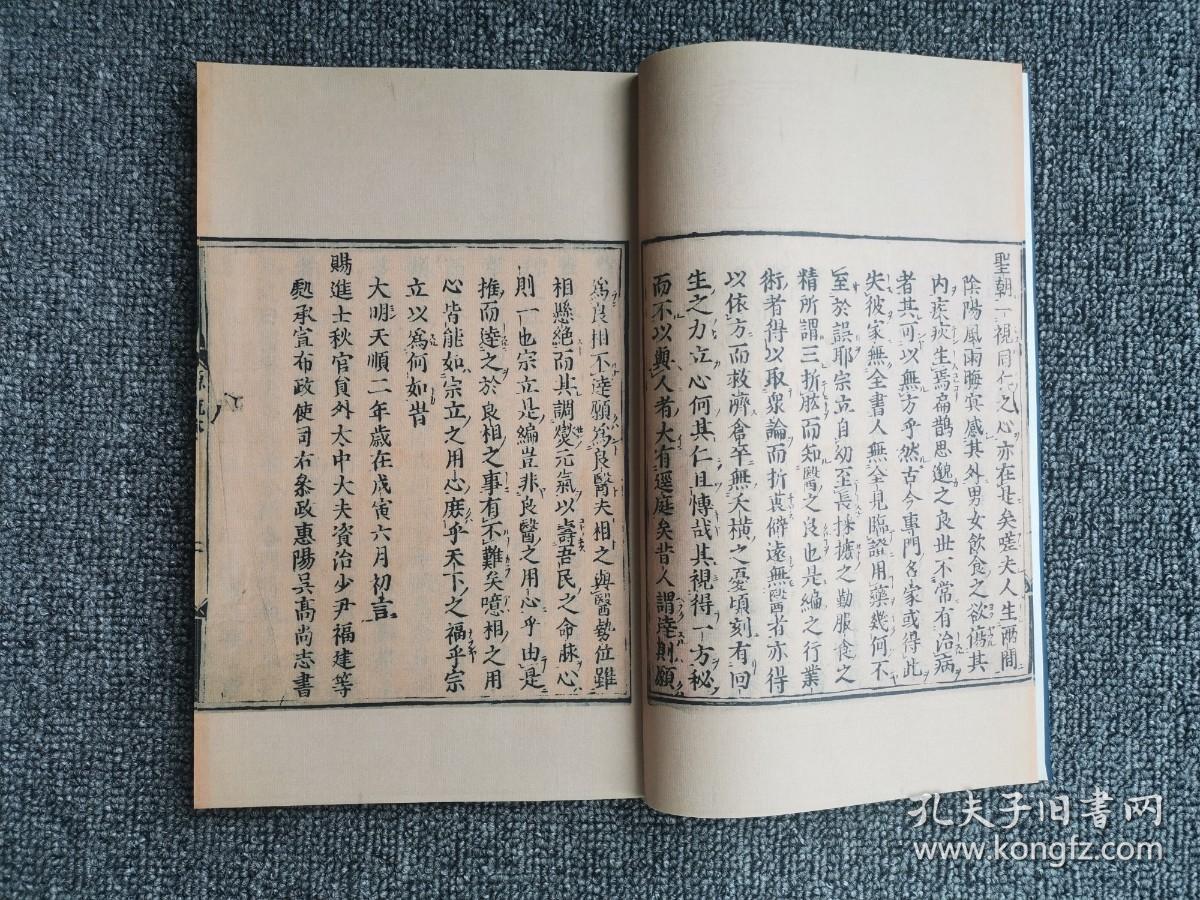 聖朝一視同仁之心亦在是矣嗟夫人生兩間
陰陽風雨晦冥感其外男女飲食之欲傷其
内疾疢生焉扁鵲思邈之良世不常有治病
者其可以無方乎然古今專門名家或得此
失彼家無全書人無全見臨證用藥幾何不
至於誤耶宗立自幼至長採摭之勤服食之
精所謂三折肱而知醫之良也是編之行業
術者得以取衆論而折衷僻遠無醫者亦得
以依方而救濟倉卒無夭橫之憂頃刻有回
生之力立心何其仁且博哉其視得一方秘
而不以與人者大有逕庭矣昔人謂達則願
爲良相不達願爲良醫夫相之與醫勢位雖
相懸絶而其調燮元氣以壽吾民之命脉心
則一也宗立是編豈非良醫之用心乎由是
推而達之於良相之事有不難矣噫相之用
心皆能如宗立之用心庶乎天下之福乎宗
立以爲何如昔
大明天順二年歳在戊寅六月初吉
賜進士秋官員外太中大夫資治少尹福建等
處承宣布政使司右叅政惠陽吳高尚志書
孔夫子旧書网
www.kongfz.com